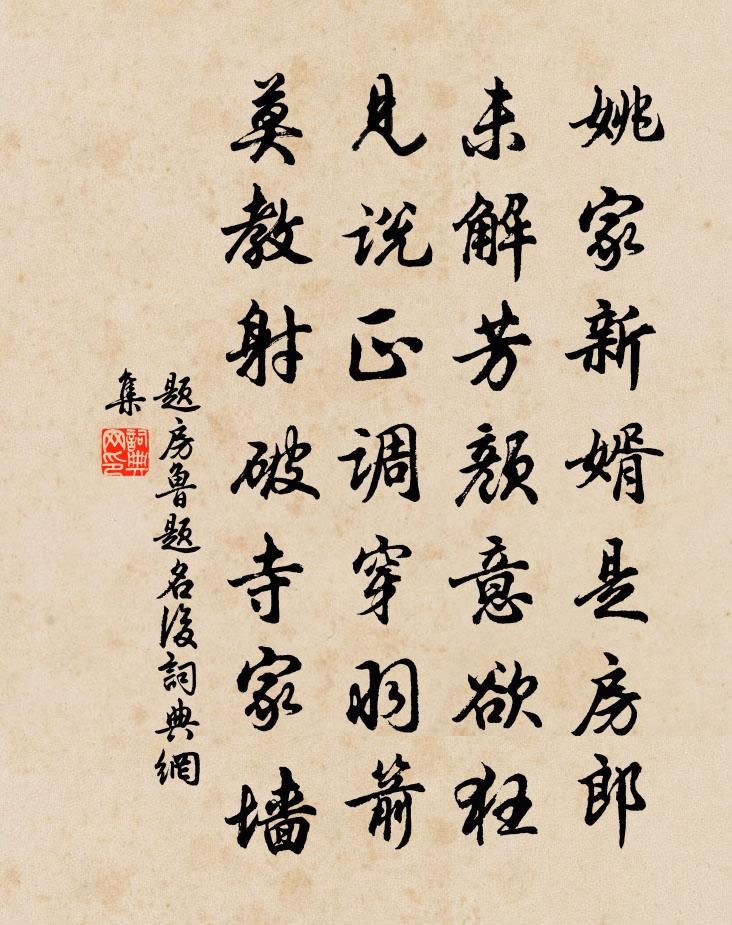 姚家新婿是房郎
未解芳颜意欲狂
见说正调穿羽箭
莫教射破寺家墙
题房鲁题名後詞典網
集
詞典
网印